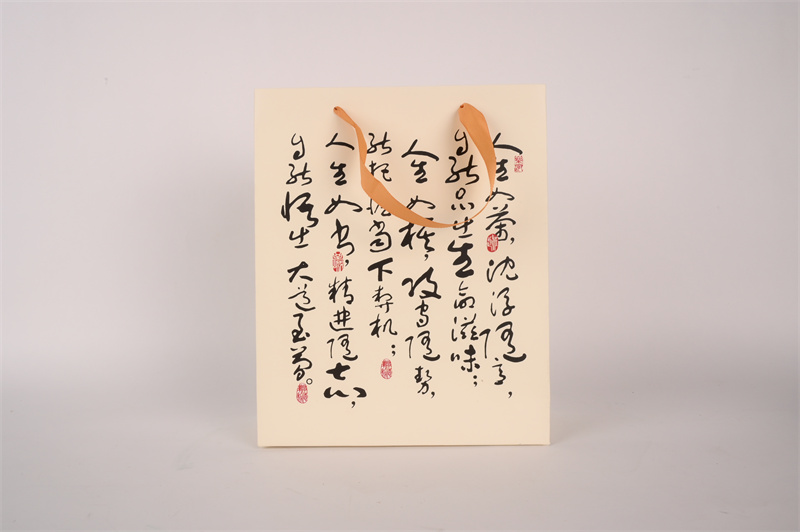 人生如茶，沈浮随意，
自能品出生命滋味；
人生如棋，攻守随势，
能把握当下契机；
人生如书，精进随心，
自能悟出大道至简。